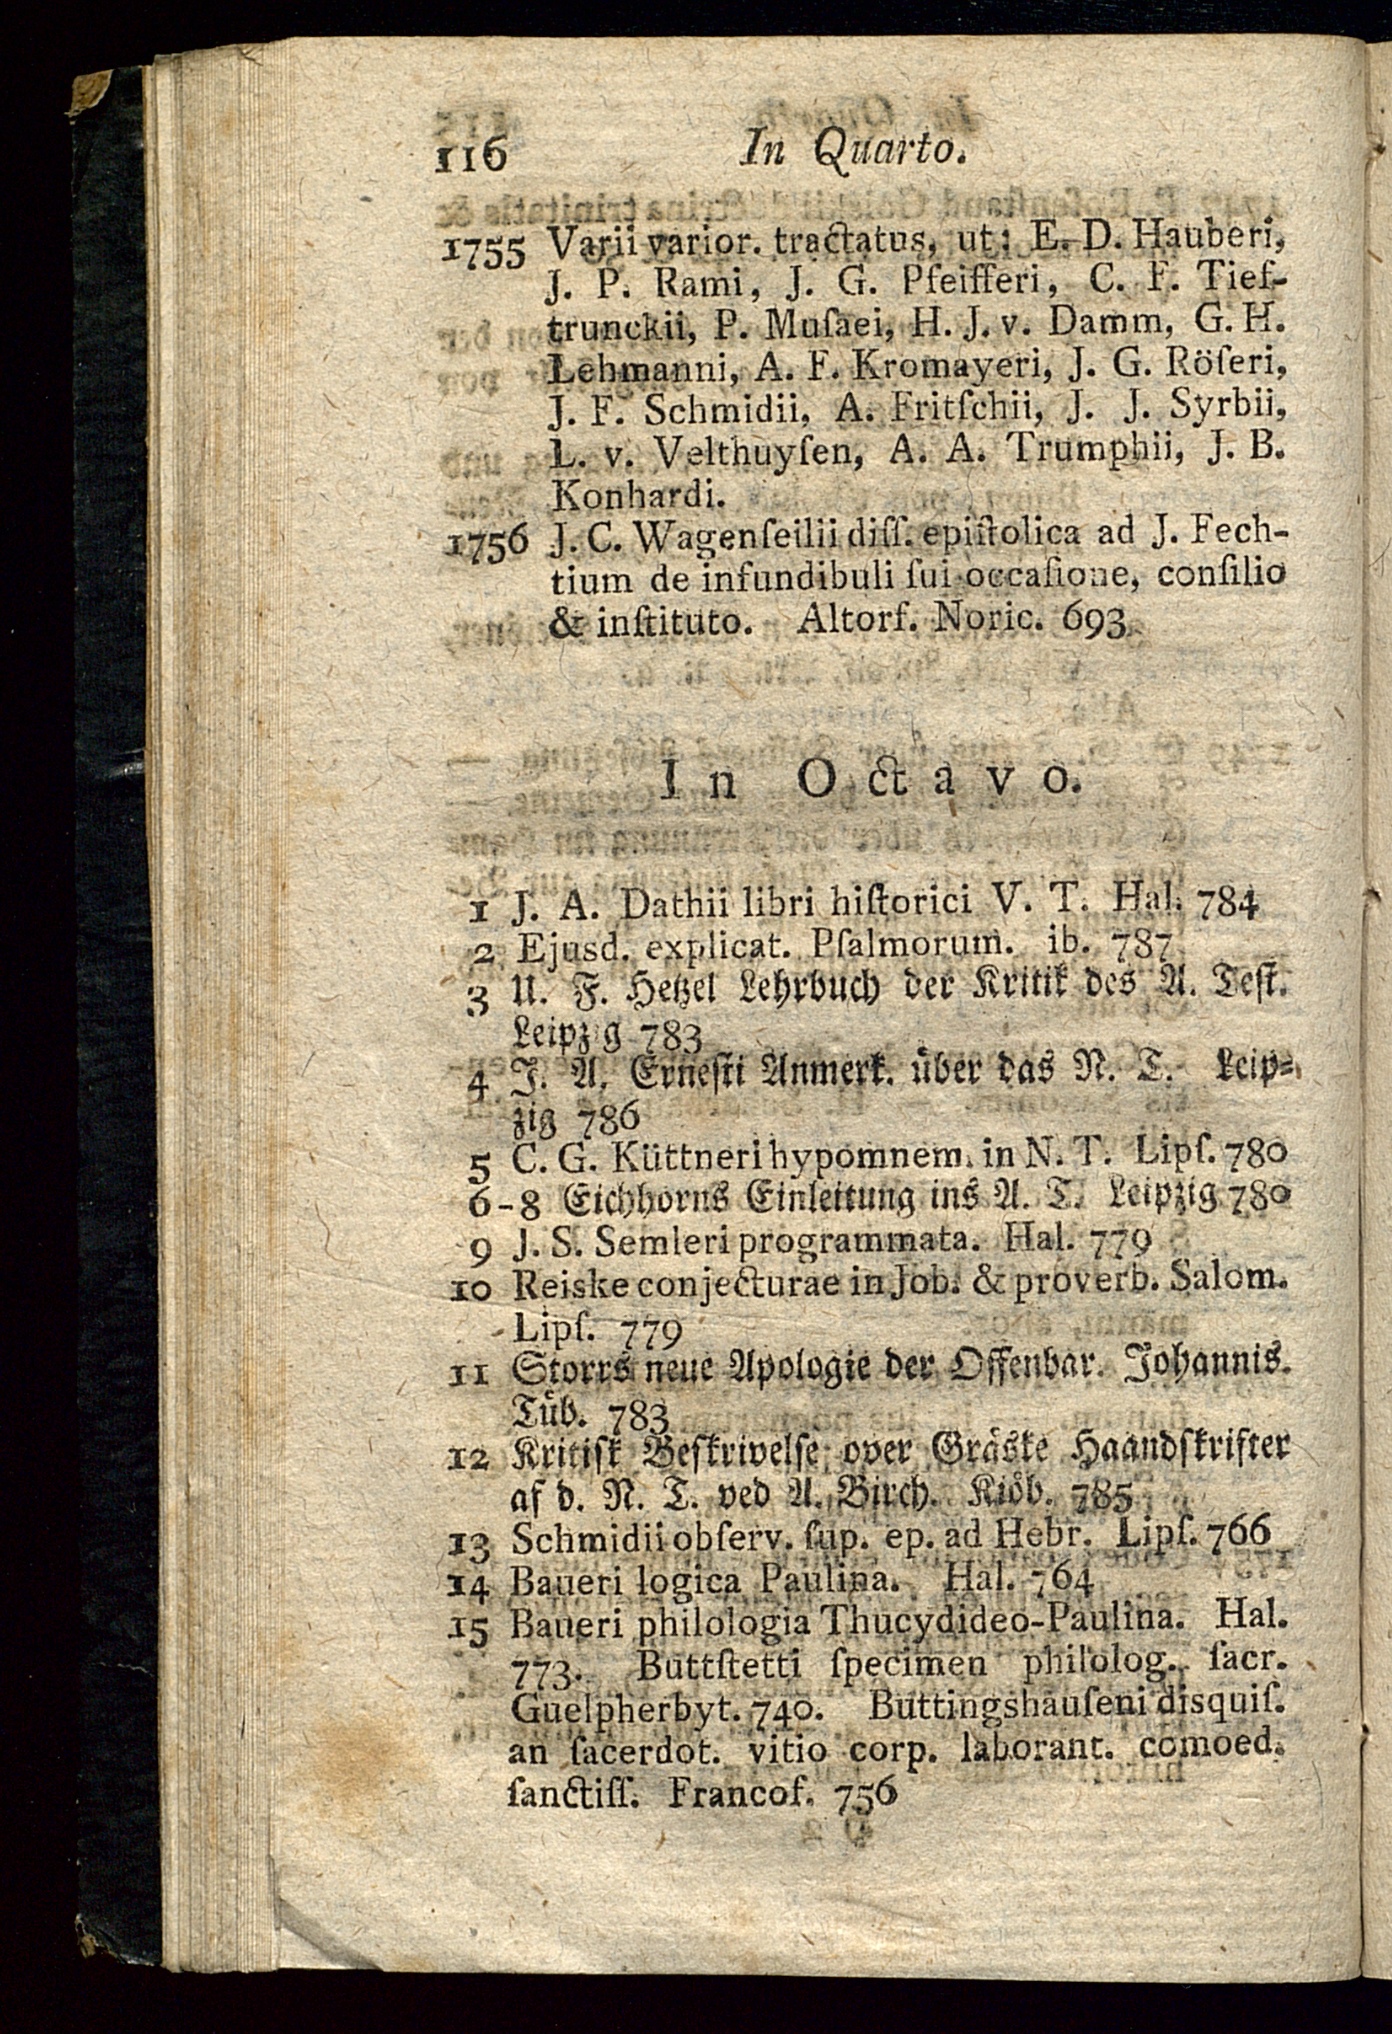 116 In Quarto.
1755 Varii varior. tractatus, ut: E. D. Hauberi,
J. P. Rami, J. G. Pfeifferi, C. F. Tief-
trunckii, P. Muſaei, H. J. v. Damm, G. H.
Lehmanni, A. F. Kromayeri, J. G. Röſeri,
J. F. Schmidii, A. Fritſchii, J. J. Syrbii,
L. v. Velthuyſen, A. A. Trumphii, J. B.
Konhardi.
1756 J. C. Wagenſeilii diſſ. epiſtolica ad J. Fech-
tium de infundibuli ſui occaſione, conſilio
& inſtituto. Altorf. Noric. 693
In Octavo.
1 J. A. Dathii libri hiſtorici V. T. Hal. 784
2 Ejusd. explicat. Pſalmorum. ib. 787
3 U. F. Hetzel Lehrbuch der Kritik des A. Teſt.
Leipzig 783
4 J. A. Erneſti Anmerk. über das N. T. Leip-
zig 786
5 C. G. Küttneri hypomnem. in N. T. Lipſ. 780
6-8 Eichhorns Einleitung ins A. T. Leipzig 780
9 J. S. Semleri programmata. Hal. 779
10 Reiske conjecturae in Job. & proverb. Salom.
Lipſ. 779
11 Storrs neue Apologie der Offenbar. Johannis.
Tüb. 783
12 Kritiſk Beſkrivelſe over Gräske Haandſkrifter
af d. N. T. ved A. Birch. Kiöb. 785
13 Schmidii obſerv. ſup. ep. ad Hebr. Lipſ. 766
14 Baueri logica Paulina. Hal. 764
15 Baueri philologia Thucydideo-Paulina. Hal.
773. Buttſtetti ſpecimen philolog. ſacr.
Guelpherbyt. 740. Buttingshauſeni disquiſ.
an ſacerdot. vitio corp. laborant. comoed.
ſanctiſſ. Francof. 756